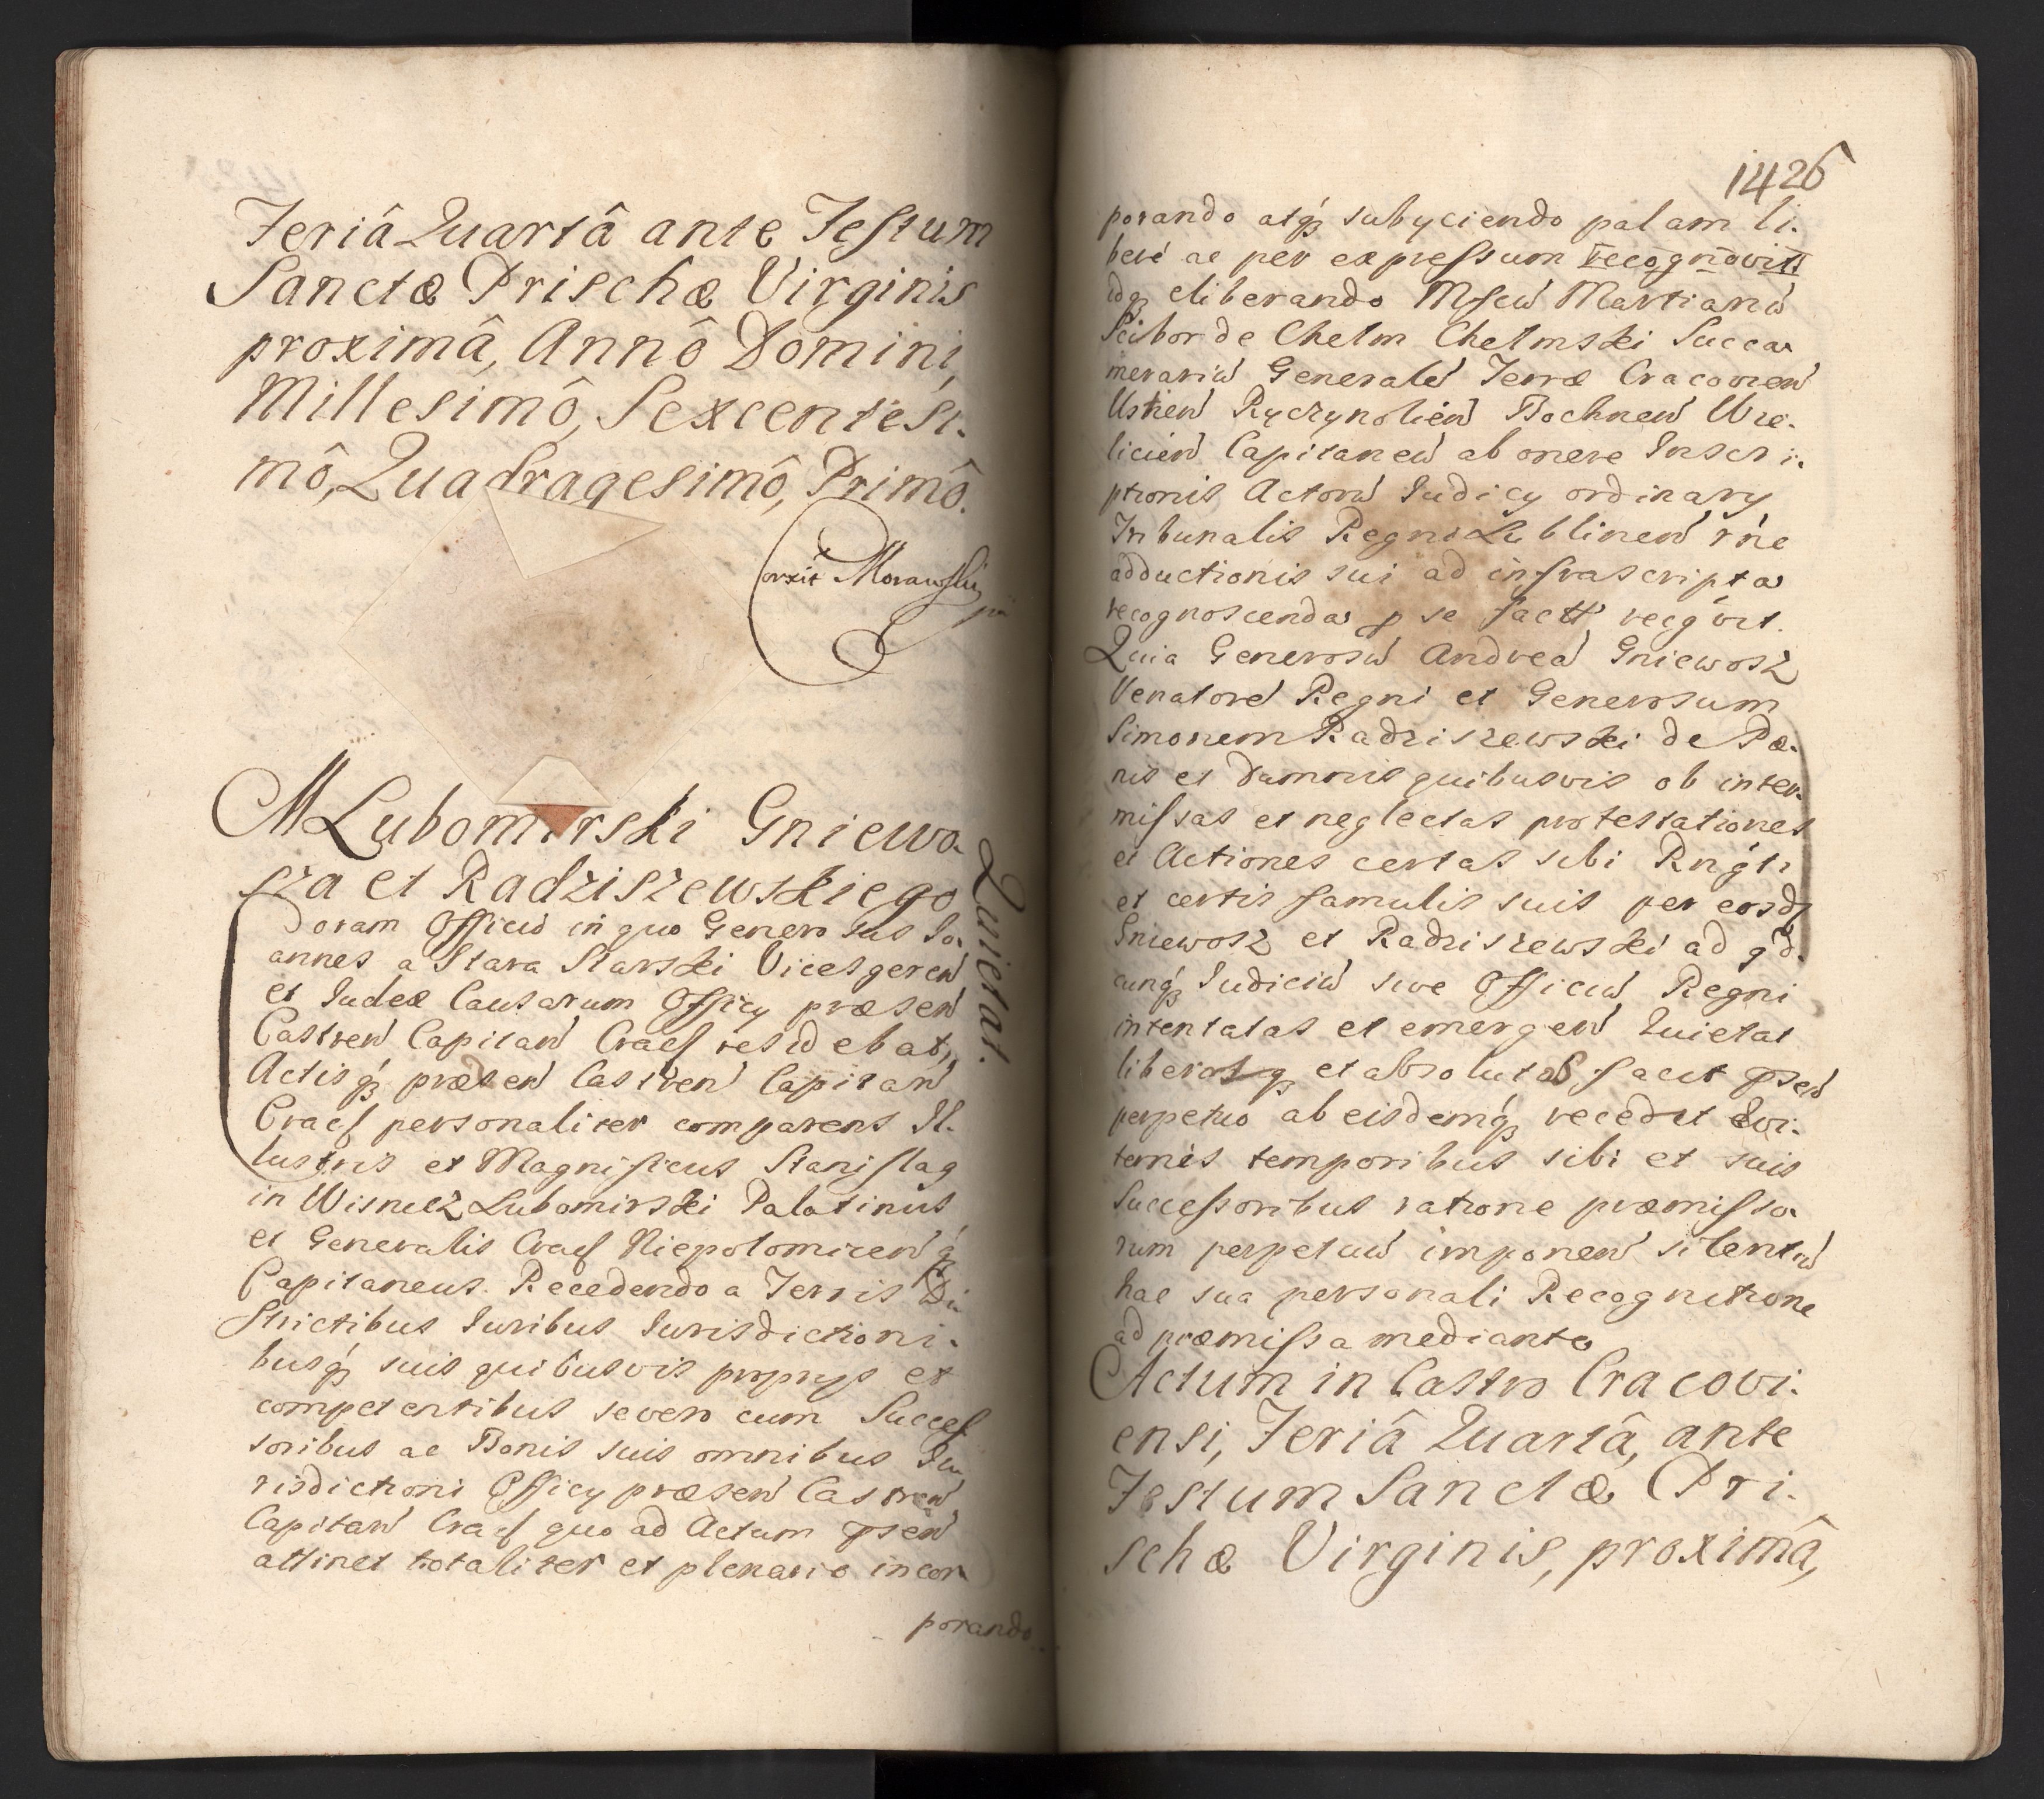 Feriâ Quartâ ante Festum
Sanctæ Prischæ Virginis
proximâ, Annô Domini,
Millesimô, Sexcentesi-
mô, Quadragesimô, Primô.
Corxit Morawski
MLubomirski Gniewo-
sza et Radziszewskiego
Quietat.
Coram Officio in quo Generosus Jo-
annes a Stara Starski Vicesgeren
et Judex Causarum Officy præsen
Castren Capitan Cracs residebat,
Actisq præsen Castren Capitan
Cracs personaliter comparens Il-
lustris et Magnificus Stanislaq
in Wisnicz Lubomirski Palatinus
et Generalis Cracs Niepolomicenq
Capitaneus. Recedendo a Terris Di-
strictibus Juribus Jurisdictioni-
busq suis quibusvis proprys et
competentibus severo cum Succes
soribus ac Bonis suis omnibus Ju-
risdictioni Officy præsen Castren
Capitan Cracs quo ad Actum psen
attinet totaliter et plenario incor-
porando
1426
porando atq subyciendo palam li-
bere ac per expressum recognovitt
idq eliberando Mfcu Martianu
Scibor de Chelm Chelmski Succa-
merariu Generale Terræ Cracovien
Ustien Ryczynolien Bochnen Wie-
licien Capitaneu ab onere Inscri-
ptionis Actoru Judicy ordinary
Tribunalis Regni Lublinen rne
adductionis sui ad infrascripta
recognoscenda p se factt recgvit.
Quia Generosu Andrea Gniewosz
Venatore Regni et Generosum
Simonem Radziszewski de Pæ-
nis et Damnis quibusvis ob inter-
missas et neglectas protestationes
et Actiones certas sibi Rngti
et certis famulis suis per eosd
Gniewosz et Radziszewski ad qd-
cunq Judiciu sive Officiu Regni
intentatas et emergen Quietat
liberosq et absolutos facit psen
perpetuo ab eisdemq recedit Evi-
ternis temporibus sibi et suis
Successoribus ratione præmisso-
rum perpetuu imponen silentiu
hac sua personali Recognitione
ad præmissa mediante
Actum in Castro Cracovi-
ensi, Feriâ Quartâ, ante
Festum Sanctæ Pri-
schæ Virginis, proximâ,